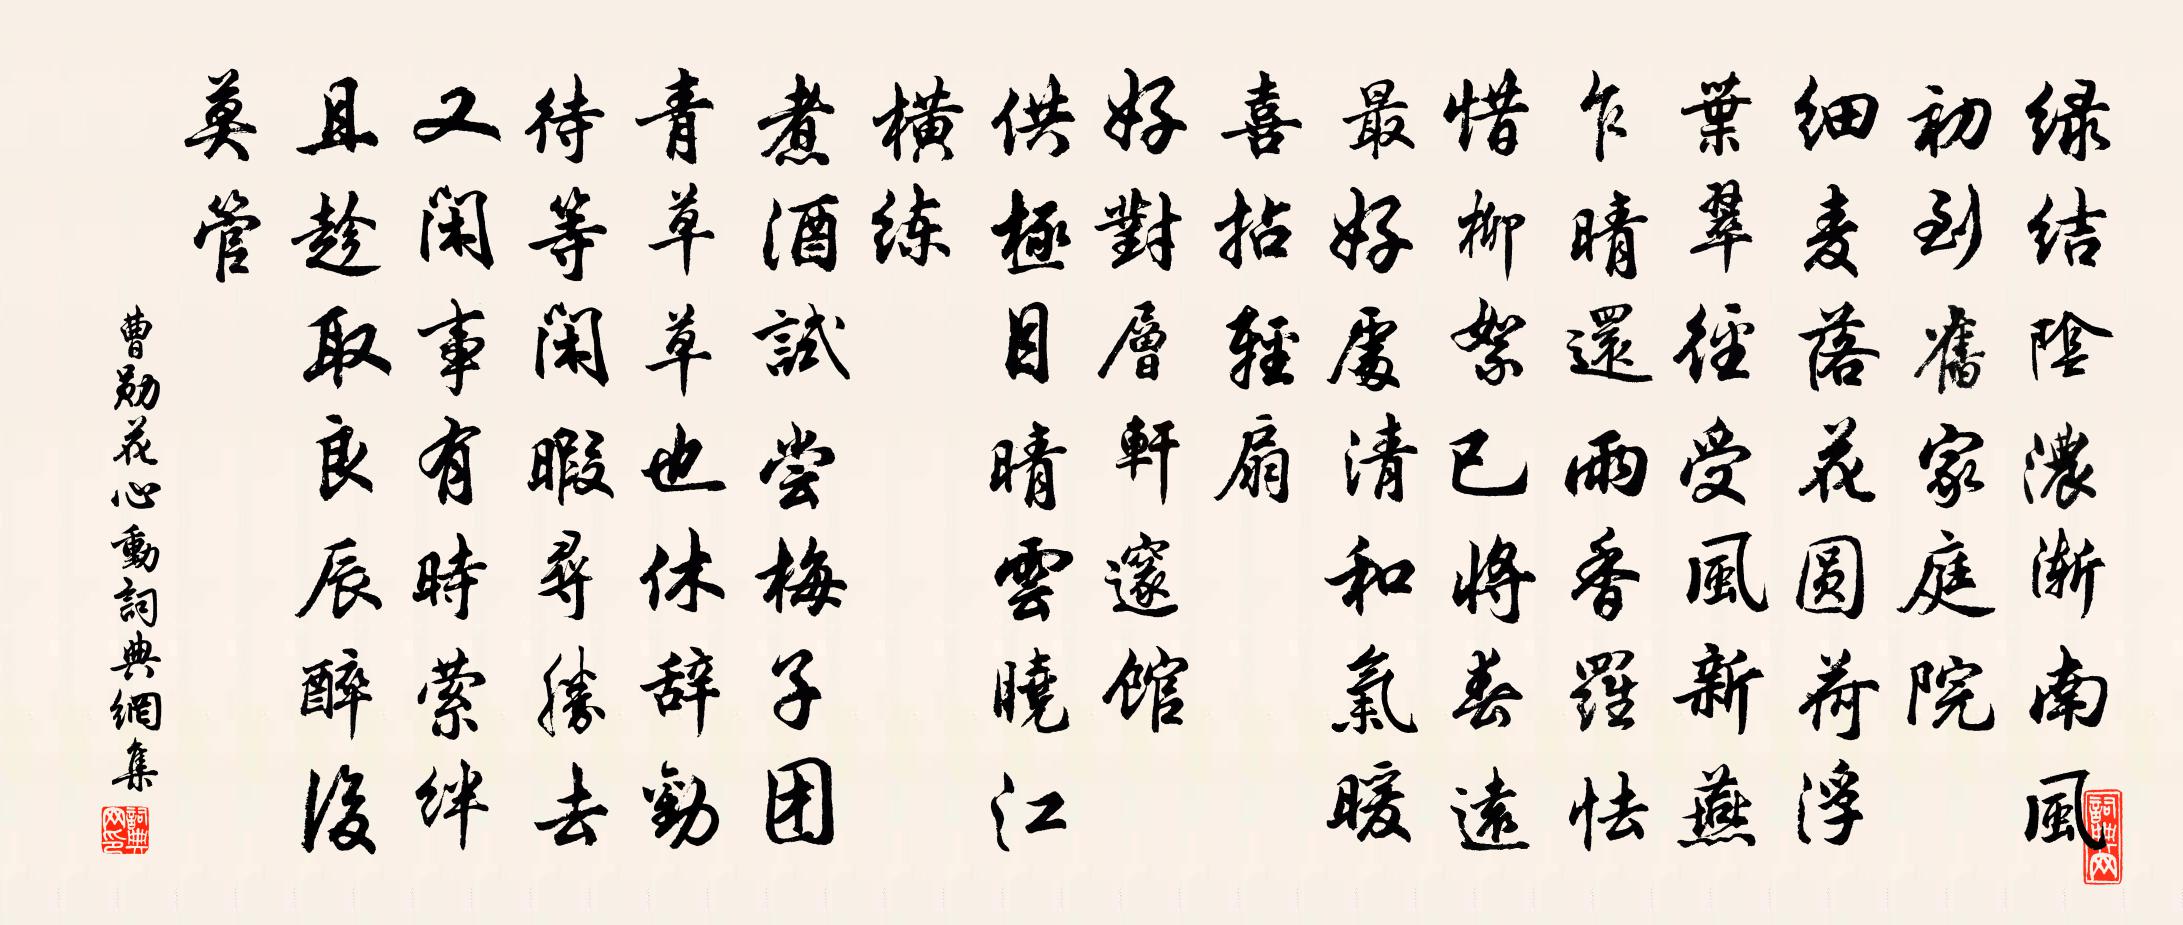 绿结陰濃漸南風
初到舊家庭院
细麦落花圆荷浮
葉翠徑受風新燕
乍晴還雨香羅怯
惜柳絮已將春遠
最好處清和氣暖
喜拈輕扇
好對層軒邃館
供極目晴雲曉江
橫练
煮酒試尝梅子团
青草草也休辞勸
待等闲暇尋勝去
又闲事有時萦絆
且趁取良辰醉後
莫管
曹勛花心動詞典網集
詞典网
詞典网